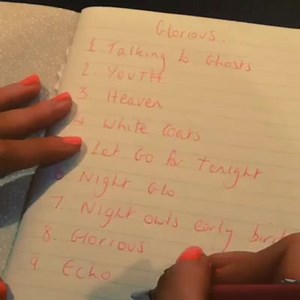 Glorious.
1. Talking to Ghosts
2. YOUTH
3. Heaven
4. White Coats
Let Go for Tonight
6. Night Glo
7. Night owls early bird
8. Glorious
9. Echo